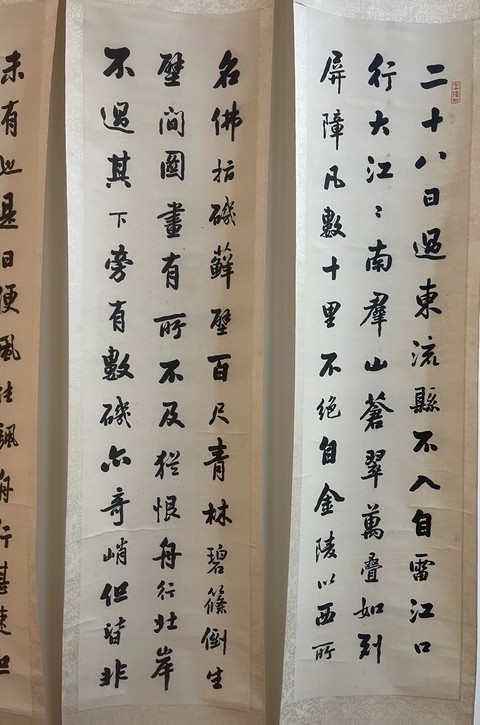 二十八日過東流縣不入自雷江口
行大江〻南羣山蒼翠萬疊如列
屏障凡數十里不絕自金陵以西所
名佛指磯蘚壁百尺青林碧篠倒生
壁間圖畫有所不及猶恨舟行北岸
不過其下旁有數磯亦奇峭但皆非
未有也是日便風颿舟行甚速但